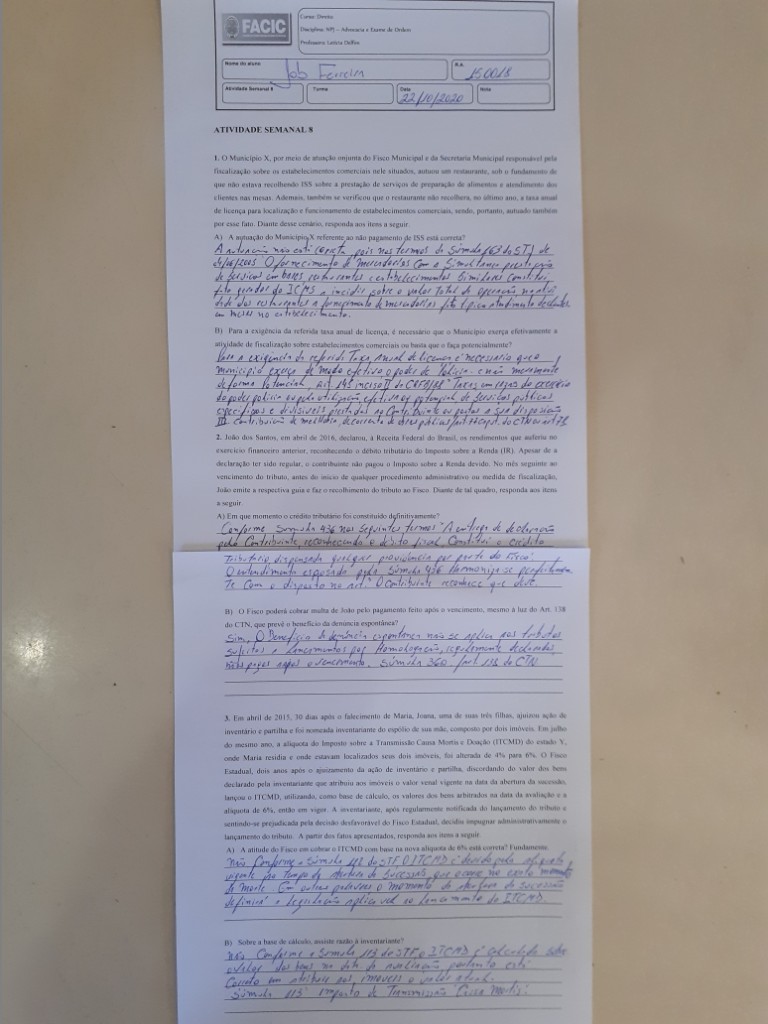 FACIC
Curso: Direito
Disciplina: NPJ – Advocacia e Exame de Ordem
Professora: Letícia
Nome do aluno
Job Ferreira
R.A.
150018
Atividade Semanal 8
Turma
Data
22/10/2020
Nota
ATIVIDADE SEMANAL 8
1. O Município X, por meio de atuação onjunta do Fisco Municipal e da Secretaria Municipal responsável pela
fiscalização sobre os estabelecimentos comerciais nele situados, autuou um restaurante, sob o fundamento de
que não estava recolhendo ISS sobre a prestação de serviços de preparação de alimentos e atendimento dos
clientes nas mesas. Ademais, também se verificou que o restaurante não recolhera, no último ano, a taxa anual
de licença para localização e funcionamento de estabelecimentos comerciais, sendo, portanto, autuado também
por esse fato. Diante desse cenário, responda aos itens a seguir.
A) A autuação do Município X referente ao não pagamento de ISS está correta?
A autuação não está correta, pois nos termos do Súmula 163 do STJ de
"O fornecimento de mercadorias com a simultânea prestação
de serviços em bares restaurantes e estabelecimentos similares constitui
fato gerador do ICMS a incidir sobre o valor total da operação
dos restaurantes o fornecimento de mercadorias
em mesas no estabelecimento.
B) Para a exigência da referida taxa anual de licença, é necessário que o Município exerça efetivamente a
atividade de fiscalização sobre estabelecimentos comerciais ou basta que o faça potencialmente?
Para a exigência da referida Taxa Anual de licença é necessário que o
município exerça de modo efetivo o poder de Polícia e não meramente
de forma Potencial, art 145 inciso II da CRFB/88 "Taxas em razão do exercício
do poder polícia ou pela utilização efetiva ou potencial de serviços públicos
específicos e divisíveis prestados ao Contribuinte ou postos a sua disposição
III Contribuição de melhoria, decorrente de obras públicas
2. João dos Santos, em abril de 2016, declarou, à Receita Federal do Brasil, os rendimentos que auferiu no
exercício financeiro anterior, reconhecendo o débito tributário do Imposto sobre a Renda (IR). Apesar de a
declaração ter sido regular, o contribuinte não pagou o Imposto sobre a Renda devido. No mês seguinte ao
vencimento do tributo, antes do início de qualquer procedimento administrativo ou medida de fiscalização,
João emite a respectiva guia e faz o recolhimento do tributo ao Fisco. Diante de tal quadro, responda aos itens
a seguir.
A) Em que momento o crédito tributário foi constituído definitivamente?
Conforme Súmula 436 nos seguintes termos "A entrega de declaração
pelo Contribuinte, reconhecendo o débito fiscal, Constitui o crédito
Tributário, dispensada qualquer providência por parte do Fisco".
O entendimento esposado pela Súmula 436 Harmoniza-se perfeitamen
te Com o disposto no art." O contribuinte reconhece que deve.
B) O Fisco poderá cobrar multa de João pelo pagamento feito após o vencimento, mesmo à luz do Art. 138
do CTN, que prevê o benefício da denúncia espontânea?
Sim, O Benefício da denúncia espontânea não se aplica aos tributos
sujeitos a Lançamentos por Homologação, regularmente declarados,
mas pagos após o vencimento. Súmula 360. art. 138 do CTN
3. Em abril de 2015, 30 dias após o falecimento de Maria, Joana, uma de suas três filhas, ajuizou ação de
inventário e partilha e foi nomeada inventariante do espólio de sua mãe, composto por dois imóveis. Em julho
do mesmo ano, a alíquota do Imposto sobre a Transmissão Causa Mortis e Doação (ITCMD) do estado Y,
onde Maria residia e onde estavam localizados seus dois imóveis, foi alterada de 4% para 6%. O Fisco
Estadual, dois anos após o ajuizamento da ação de inventário e partilha, discordando do valor dos bens
declarado pela inventariante que atribuiu aos imóveis o valor venal vigente na data da abertura da sucessão,
lançou o ITCMD, utilizando, como base de cálculo, os valores dos bens arbitrados na data da avaliação e a
alíquota de 6%, então em vigor. A inventariante, após regularmente notificada do lançamento do tributo e
sentindo-se prejudicada pela decisão desfavorável do Fisco Estadual, decidiu impugnar administrativamente o
lançamento do tributo. A partir dos fatos apresentados, responda aos itens a seguir.
A) A atitude do Fisco em cobrar o ITCMD com base na nova alíquota de 6% está correta? Fundamente.
Não Conforme a Súmula 112 do STF, O ITCMD é devido pela alíquota
vigente ao tempo da abertura da Sucessão, que ocorre no exato momento
da morte. Em outras palavras o momento da abertura da sucessão
definirá a legislação aplicável ao lançamento do ITCMD.
B) Sobre a base de cálculo, assiste razão à inventariante?
Não Conforme a Súmula 113 do STF, o ITCMD é calculado sobre
o valor dos bens na data da avaliação portanto está
Correto em atribuir aos imóveis o valor atual.
Súmula 113 imposto de Transmissão "Causa Mortis".